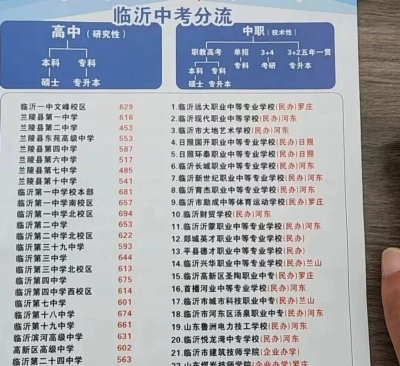 临沂中考分流
高中（研究性）
本科 专科
硕士 专升本
中职（技术性）
职教高考 单招 3+4 3+2五年一贯
本科 专科 专科 考研 专升本
硕士 专升本
临沂一中文峰校区 629
兰陵县第一中学 616
兰陵县第二中学 453
兰陵县东苑高级中学 553
兰陵县第四中学 587
兰陵县第六中学 517
兰陵县第七中学 485
兰陵县第十中学 541
临沂第一中学校本部 681
临沂第一中学南校区 657
临沂第一中学北校区 694
临沂第二中学 653
临沂第二中学北校区 622
临沂第三十九中学 593
临沂第三中学 644
临沂第三中学北校区 613
临沂第四中学 675
临沂第四中学西校区 614
临沂第七中学 601
临沂第十八中学 674
临沂第十九中学 661
临沂滨河高级中学 631
高新区高级中学 602
临沂第二十四中学 563
1.临沂远大职业中等专业学校(民办)罗庄
2.临沂现代职业中等学校(民办)河东
3.临沂市大地艺术学校(民办)河东
4.日照国开职业中等专业学校(民办)日照
5.日照环泰职业中等专业学校(民办)日照
6.临沂长城职业中等专业学校(民办)河东
7.临沂新世纪职业中等专业学校(民办)河东
8.临沂育杰职业中等专业学校(民办)河东
9.临沂市励成中等体育运动学校(民办)河东
10.临沂财贸学校(民办)河东
11.临沂沂蒙职业中等专业学校(民办)河东
12.郯城英才职业中等专业学校(民办)
13.平县德才职业中等专业学校(民办)
14.临沂兴华职业中等专业学校(民办)兰山
15.临沂高新区圣陶职业中专(民办)罗庄
16.首播河业中等专业学校(民办)河东
17.临沂市城市科技职业中专(民办)兰山
18.临沂市河东区汤泉职业中专(民办)河东
19.山东鲁洲电力技工学校(民办)河东
20.临沂悦龙湾中专学校(民办)河东
21.临沂市建筑技师学院(企业办学)
22.山东煤炭技师学院(企业办学)罗庄